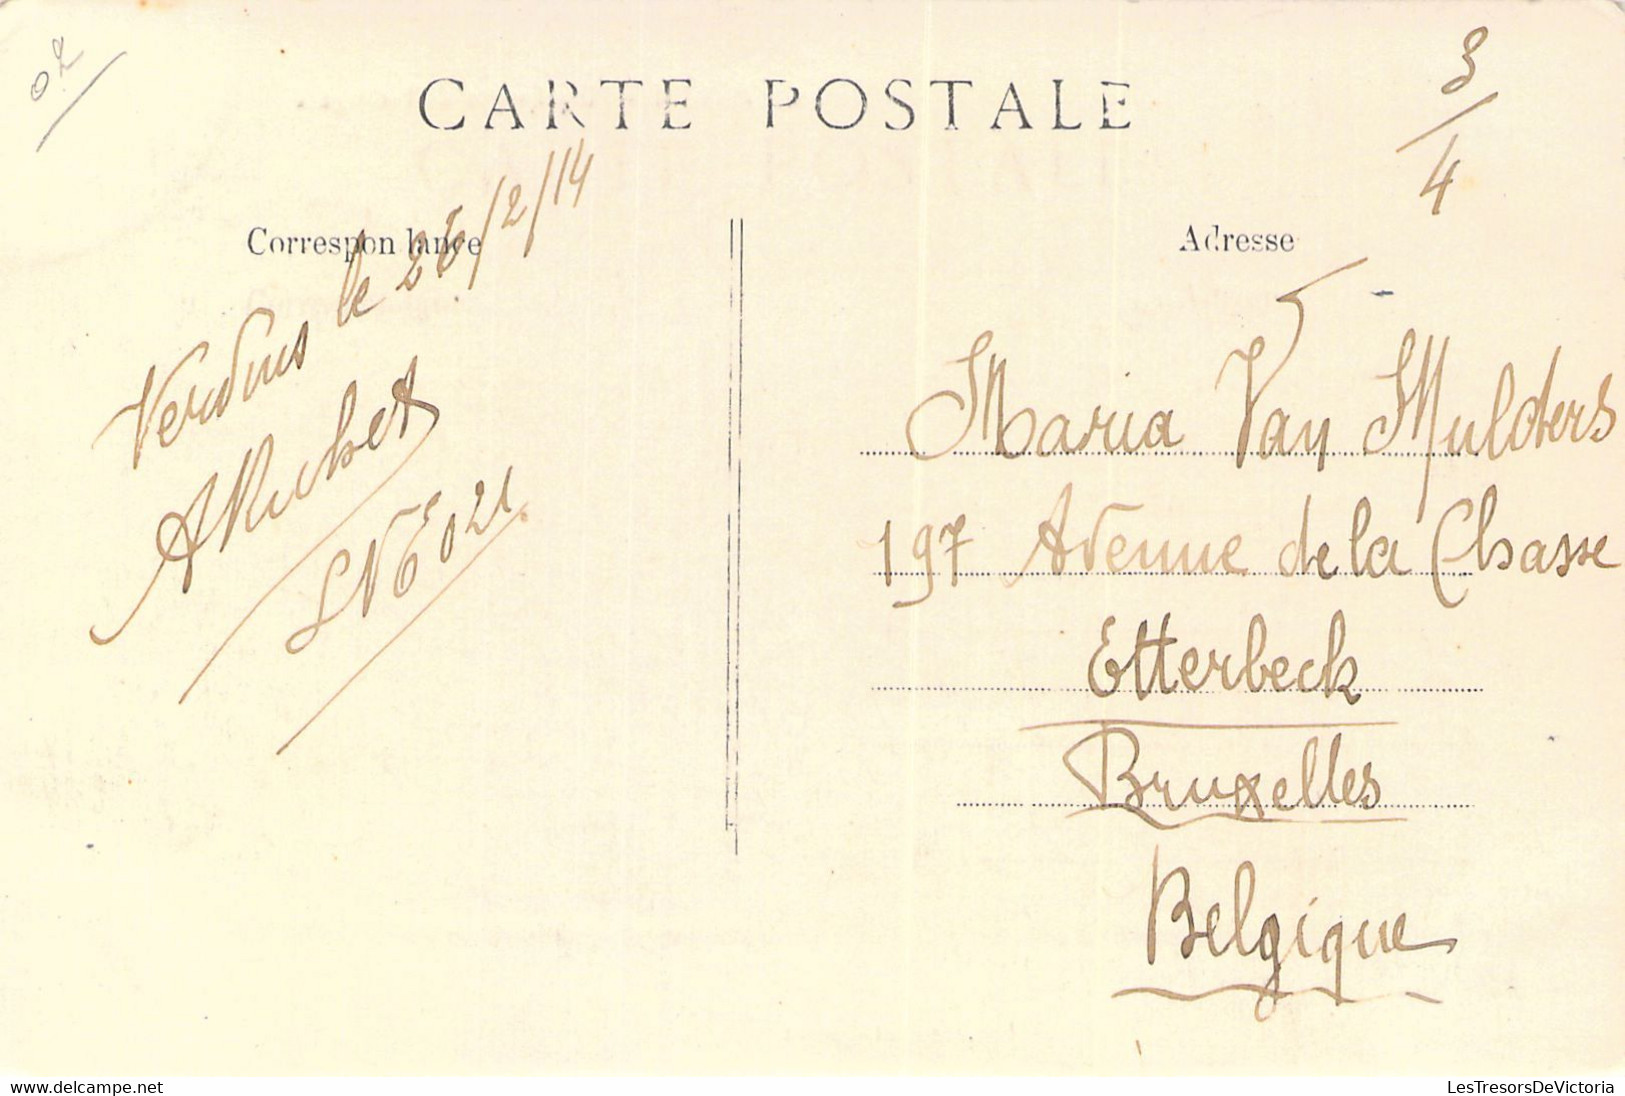 02
CARTE POSTALE
3/4
Correspondance
Adresse
le 26/2/14
Maria Van Mulders
197 Avenue de la Chasse
Etterbeck
Bruxelles
Belgique
www.delcampe.net
LesTresorsDeVictoria